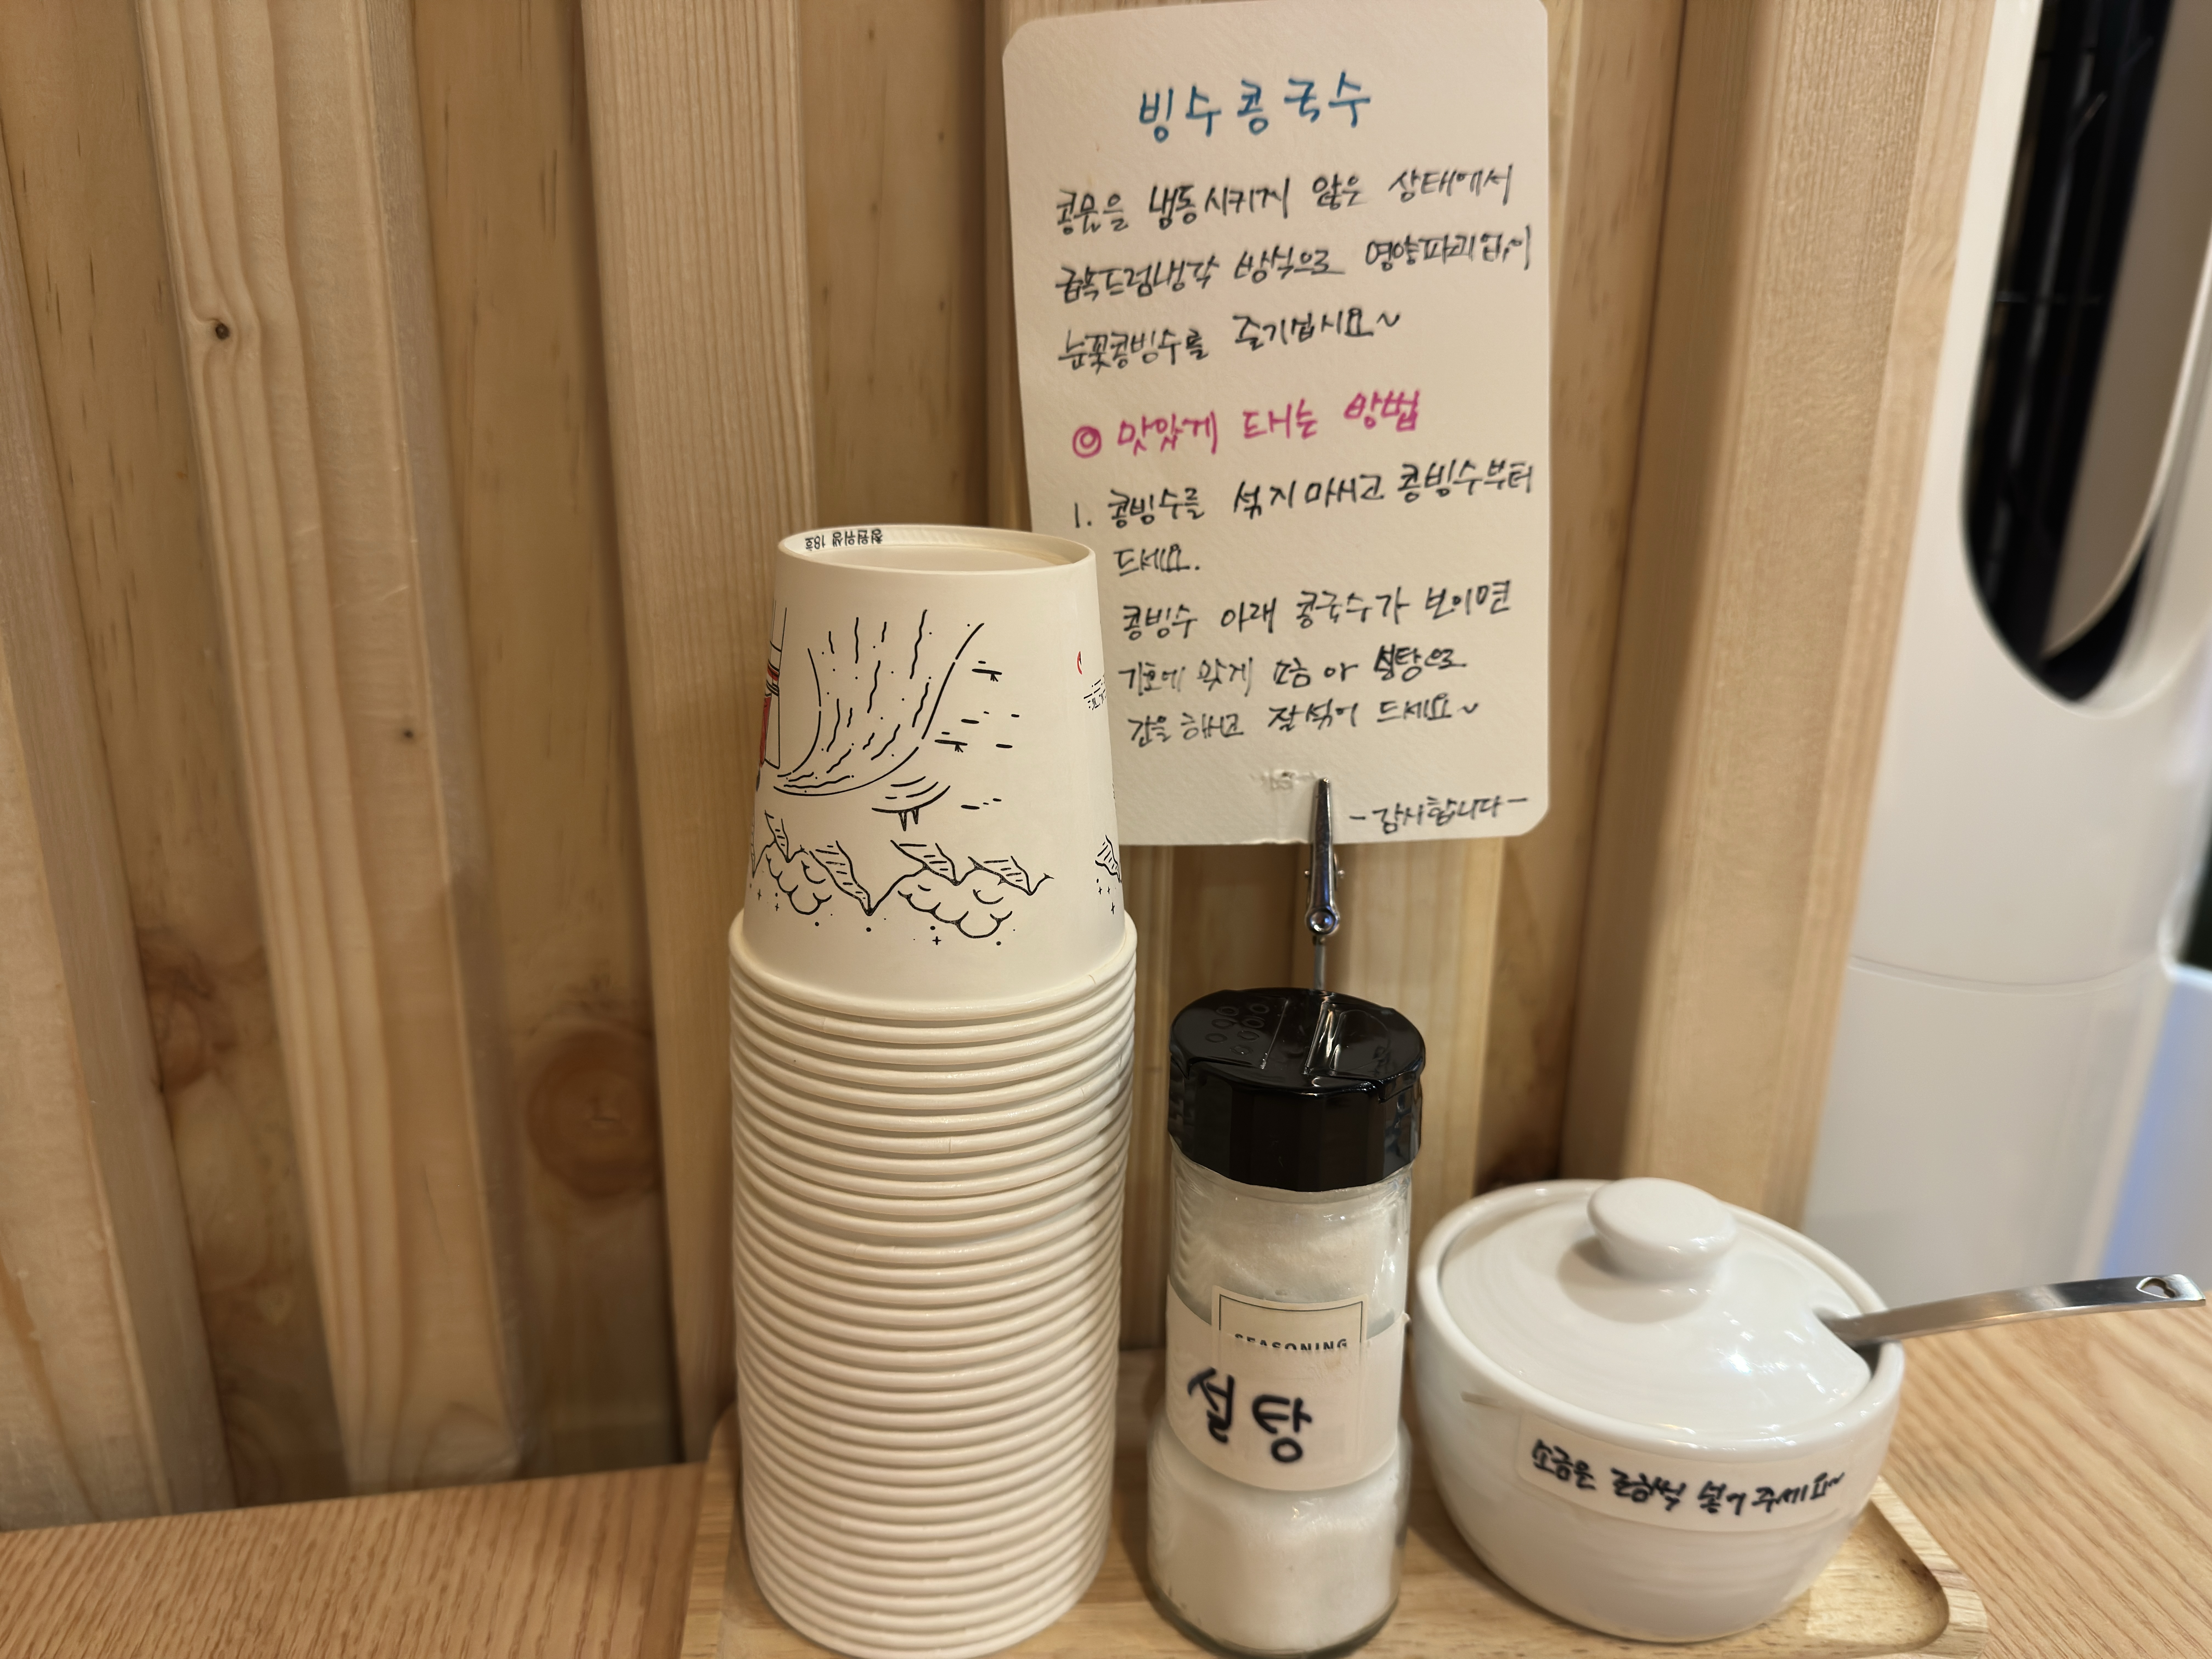 빙수콩국수
콩물을 냉동시키지 않은 상태에서
급속드럼냉각 방식으로 영양파괴없이
눈꽃콩빙수를 즐기십시요~
◎ 맛있게 드시는 방법
1. 콩빙수를 섞지마시고 콩빙수부터
드세요.
콩빙수 아래 콩국수가 보이면
기호에 맞게 소금 or 설탕으로
간을 하시고 잘섞어 드세요~
-감사합니다-
청원위생 18호
SEASONING
설탕
소금은 조금씩 넣어 주세요~